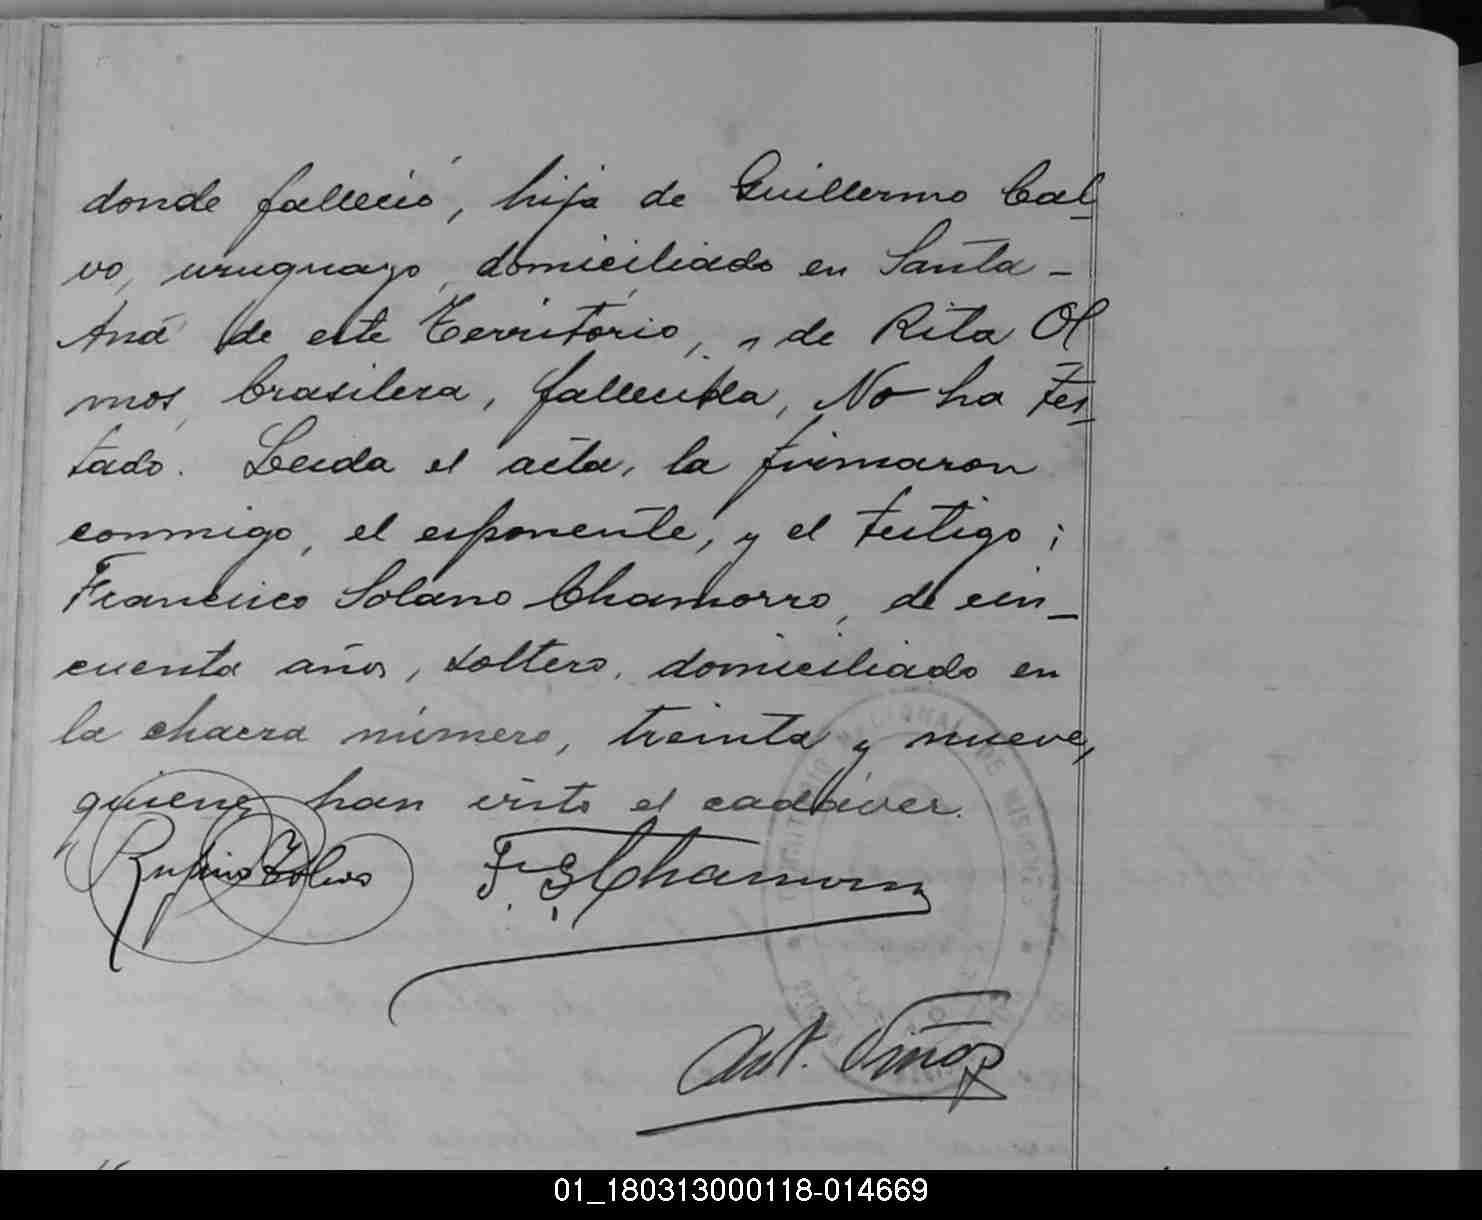 donde falleció, hija de Guillermo Cal-
vo, uruguayo, domiciliado en Santa-
Ana de este Territorio, y de Rita Ol
mos, brasilera, fallecida, No ha tes-
tado. Leida el acta, la firmaron
conmigo, el esponente, y el testigo;
Francisco Solano Chamorro, de cin-
cuenta años, soltero, domiciliado en
la chacra número, treinta y nueve,
quienes han visto el cadáver.
Rufino
F. S. Chamorro
TERRITORIO NACIONAL DE MISIONES
Ant. Viñas
01_180313000118-014669